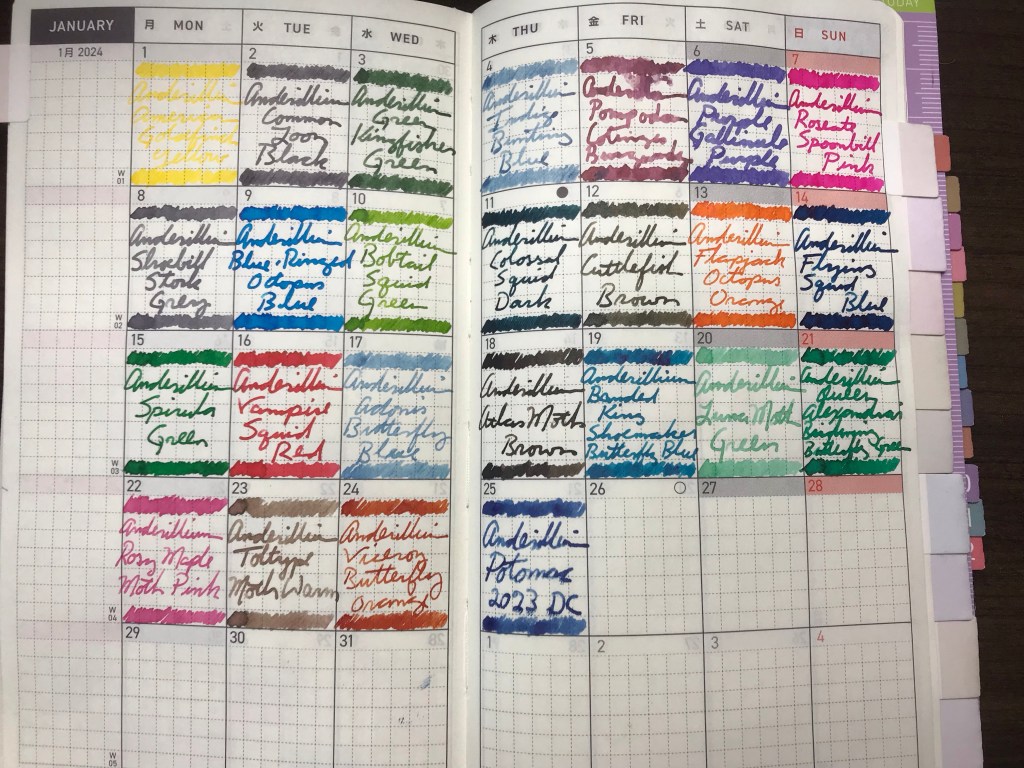 TODAY
JANUARY
月 MON
火 TUE
水 WED
木 THU
金 FRI
土 SAT
日 SUN
1月 2024
1
Anderillium
American
Goldfinch
Yellow
2
Anderillium
Common
Loon
Black
3
Anderillium
Green
Kingfisher
Green
4
Anderillium
Indigo
Bunting
Blue
5
Anderillium
Pompadour
Cotinga
Burgundy
6
Anderillium
Purple
Gallinule
Purple
7
Anderillium
Roseate
Spoonbill
Pink
W
01
8
Anderillium
Shoebill
Stork
Grey
9
Anderillium
Blue-Ringed
Octopus
Blue
10
Anderillium
Bobtail
Squid
Green
11
Anderillium
Colossal
Squid
Dark
12
Anderillium
Cuttlefish
Brown
13
Anderillium
Flapjack
Octopus
Orange
14
Anderillium
Flying
Squid
Blue
W
02
15
Anderillium
Spirula
Green
16
Anderillium
Vampire
Squid
Red
17
Anderillium
Adonis
Butterfly
Blue
18
Anderillium
Atlas Moth
Brown
19
Anderillium
Banded
King
Shoemaker
Butterfly Blue
20
Anderillium
Luna Moth
Green
21
Anderillium
Queen
Alexandria's
Birdwing
Butterfly Green
W
03
22
Anderillium
Rosy Maple
Moth Pink
23
Anderillium
Toltype
Moth Warm
24
Anderillium
Viceroy
Butterfly
Orange
25
Anderillium
Potomac
2023 DC
26
27
28
W
04
29
30
31
1
2
3
4
W
05